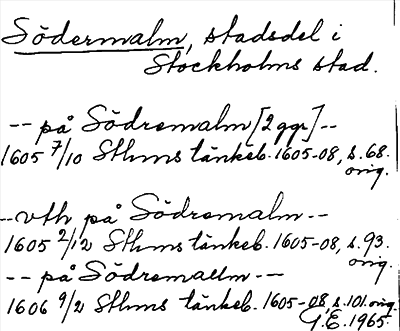 Södermalm, stadsdel i
Stockholms stad.
-- på Södremalm [2 ggr] --
1605 7/10 Sthms tänkeb. 1605-08, s. 68.
orig.
-- vth på Södremalm --
1605 2/12 Sthms tänkeb. 1605-08, s. 93.
orig.
-- på Södremallm --
1606 9/2 Sthms tänkeb. 1605-08, s. 101. orig.
G.E. 1965.